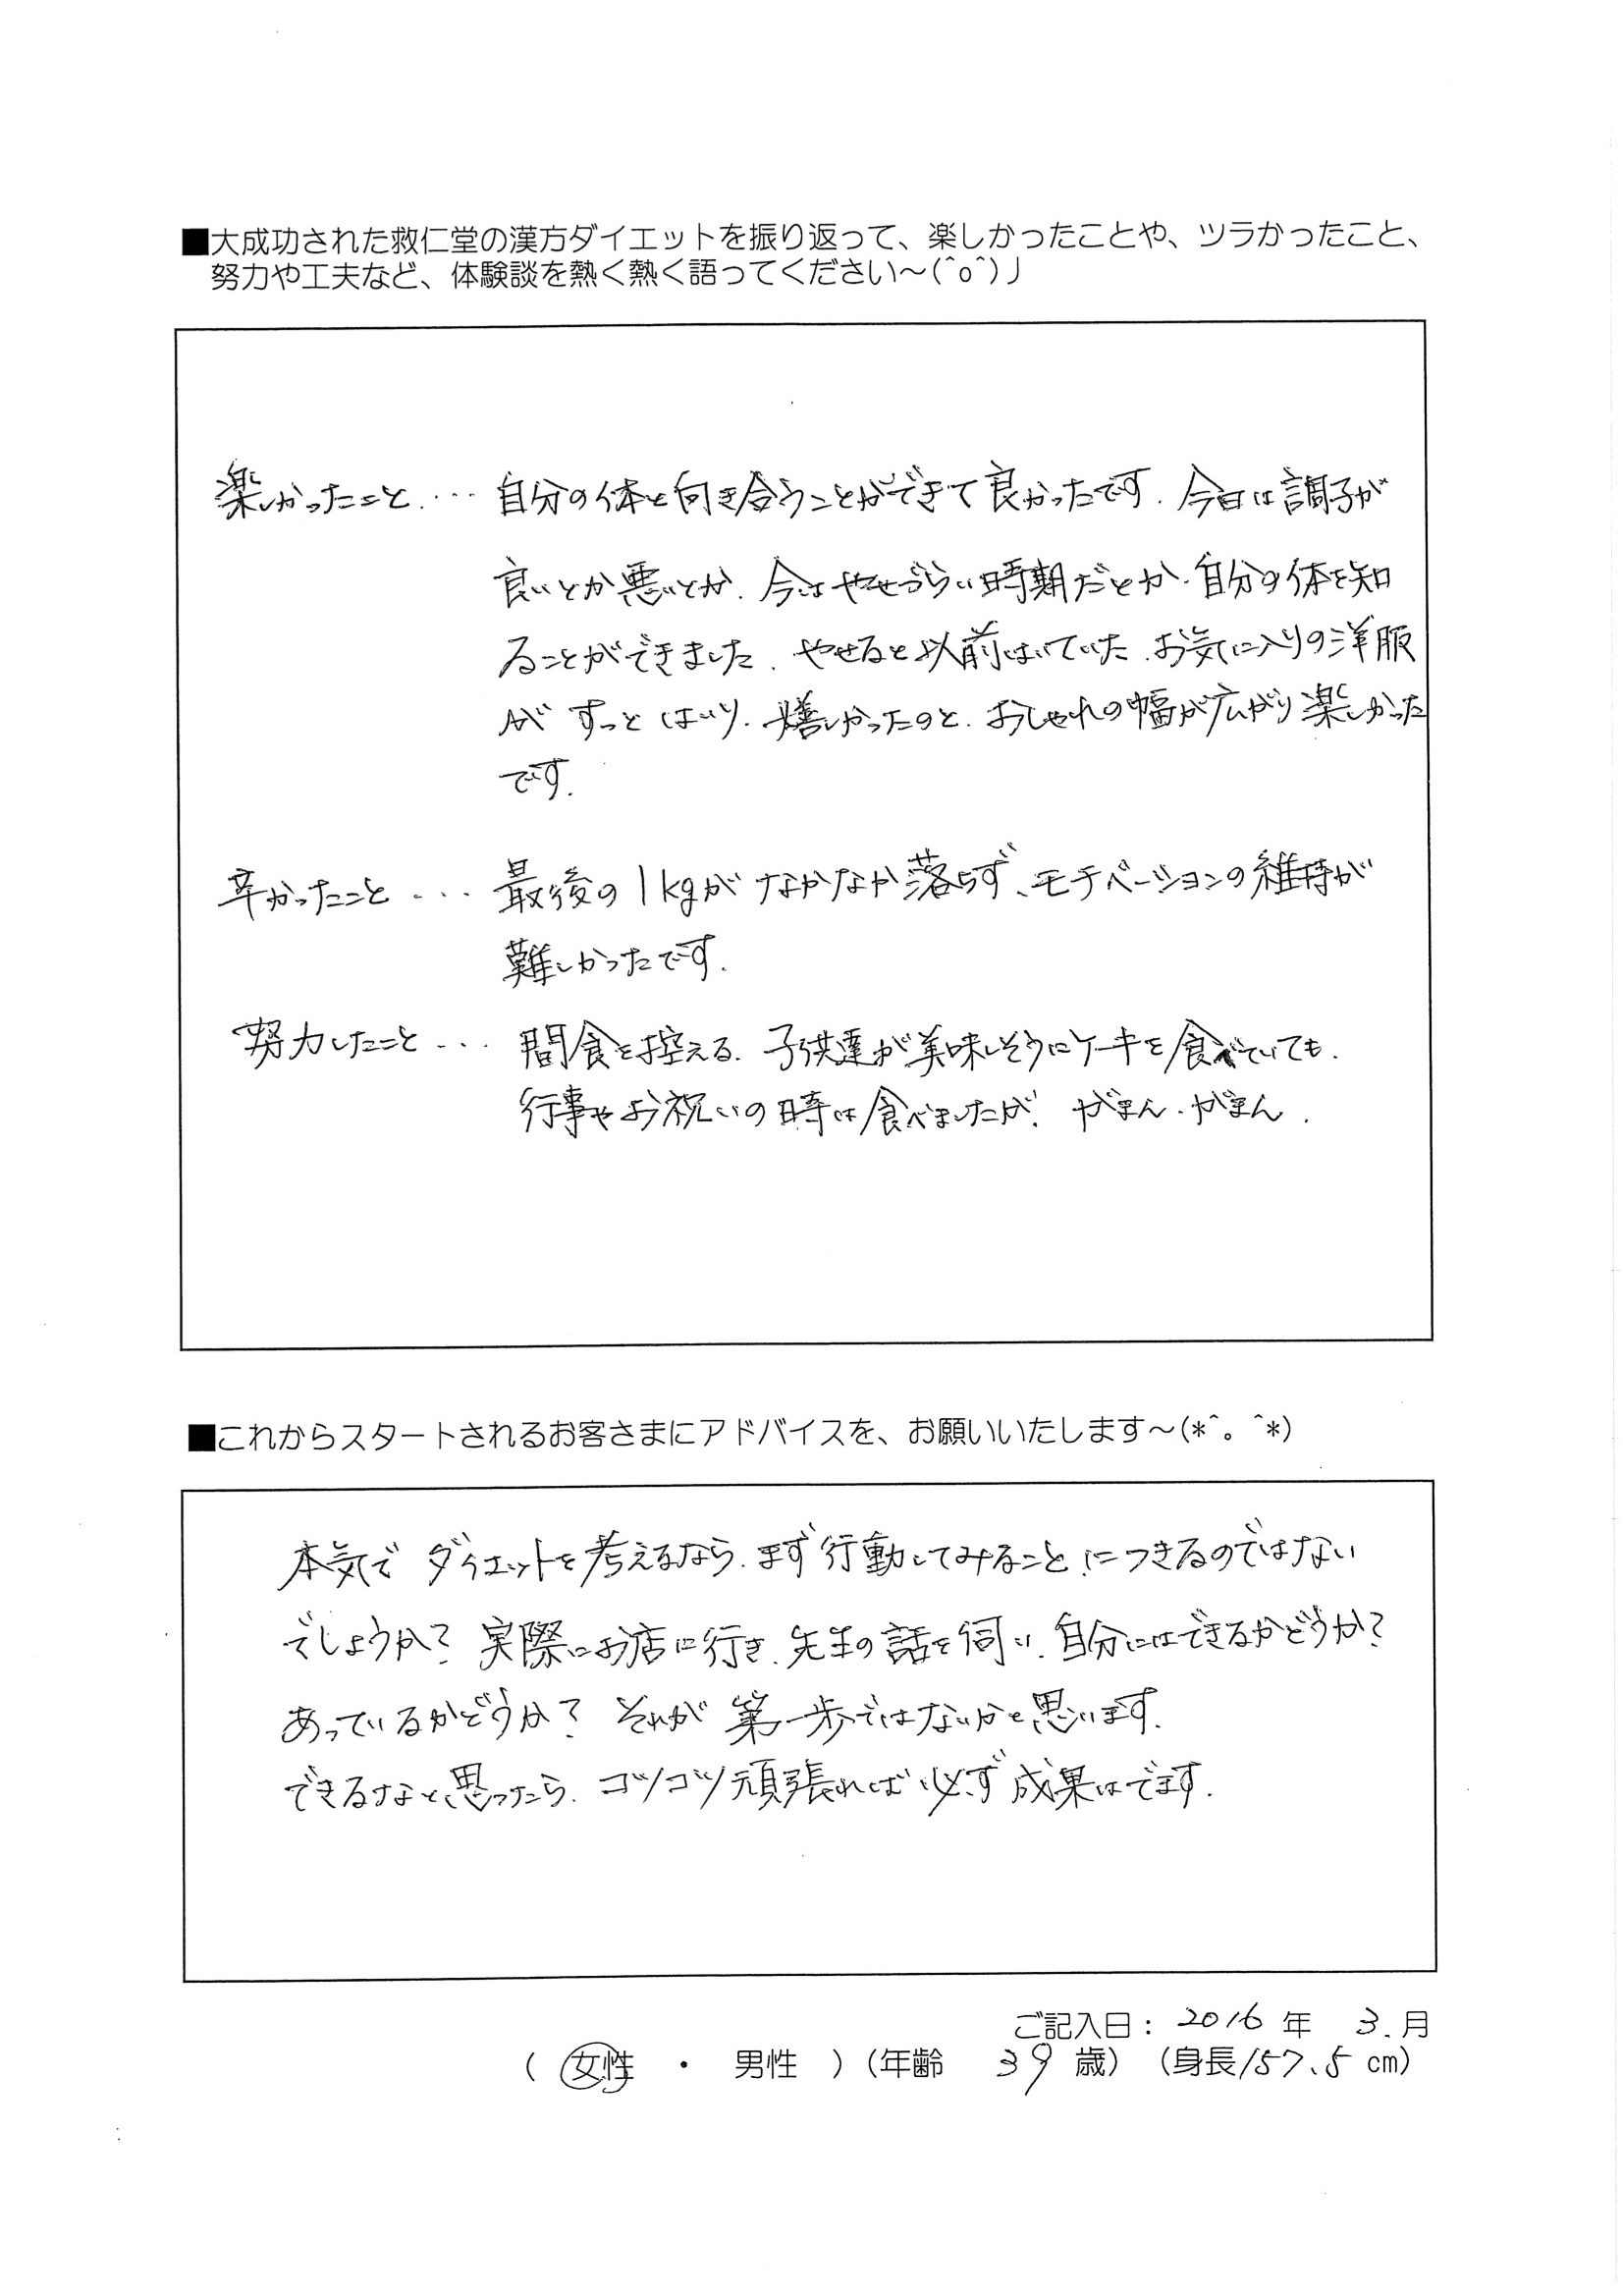 ■大成功された救仁堂の漢方ダイエットを振り返って、楽しかったことや、ツラかったこと、
努力や工夫など、体験談を熱く熱く語ってください～(^o^)丿
楽しかったこと... 自分の体と向き合うことができて良かったです. 今日は調子が
良いとか悪いとか. 今はやせづらい時期だとか. 自分の体を知
ることができました. やせると以前はいていた. お気に入りの洋服
が すっと はいり. 嬉しかったのと. おしゃれの幅が広がり楽しかった
です.
辛かったこと... 最後の1kgがなかなか落らず、モチベーションの維持が
難しかったです.
努力したこと... 間食を控える. 子供達が美味しそうにケーキを食べていても.
行事やお祝いの時は食べましたが. がまん. がまん.
■これからスタートされるお客さまにアドバイスを、お願いいたします～(*^。^*)
本気で ダイエットを考えるなら. まず行動してみること.につきるのではない
でしょうか? 実際にお店に行き. 先生の話を伺い. 自分にはできるかどうか?
あっているかどうか? それが 第一歩ではないかと思います.
できるなと思ったら. コツコツ頑張れば必ず成果はでます.
ご記入日: 2016 年 3.月
( 女性 ・ 男性 ) (年齢 39 歳) (身長157.5 cm)